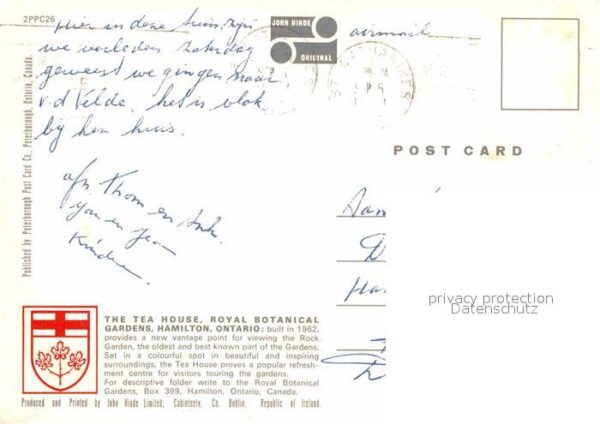 2PPC26
Hier in deze huis zijn
we verleden zaterdag
geweest we gingen naar
v.d Velde, het is vlak
bij hen huis.
JOHN HINDE
ORIGINAL
airmail
POST CARD
afz. Thom en
Jan en
Kinderen.
Aan
D
Ha
privacy protection
Datenschutz
Published by Peterborough Post Card Co., Peterborough, Ontario, Canada.
THE TEA HOUSE, ROYAL BOTANICAL
GARDENS, HAMILTON, ONTARIO: built in 1962,
provides a new vantage point for viewing the Rock
Garden, the oldest and best known part of the Gardens.
Set in a colourful spot in beautiful and inspiring
surroundings, the Tea House proves a popular refresh-
ment centre for visitors touring the gardens.
For descriptive folder write to the Royal Botanical
Gardens, Box 399, Hamilton, Ontario, Canada.
Produced and Printed by John Hinde Limited, Cabinteely, Co. Dublin, Republic of Ireland.